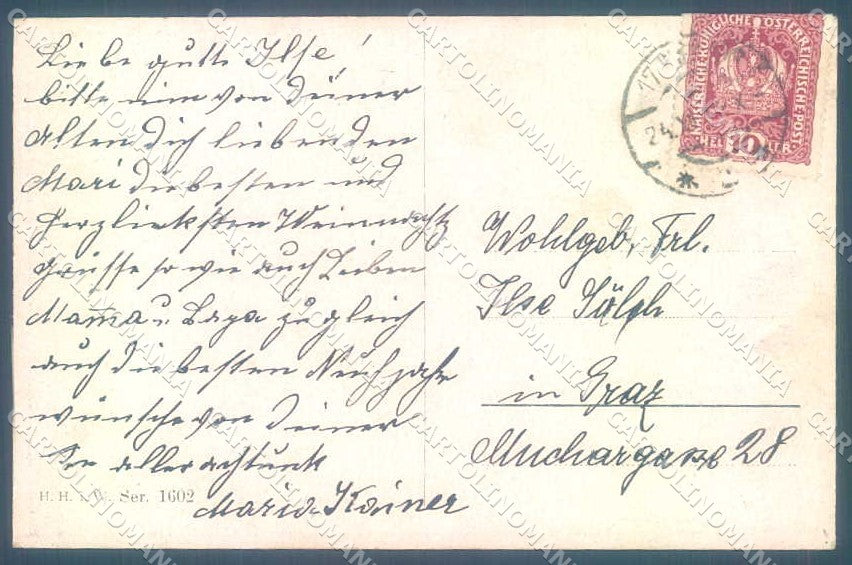 Liebe gutte Ilse!
bitte nim von Deiner
alten dich liebenden
Mari die besten und
herzlichsten Weinnachtz
grüsse so wie auch Lieben
Mama u. Papa zugleich
auch die besten Neuhjahr
wünsche von Deiner
aller achtunk
Maria Kainer
H. H. i. W. Ser. 1602
KAISERLICHE KÖNIGLICHE ÖSTERREICHISCHE POST
HELLER 10
24.
Wohlgeb. Frl.
Ilse Sölch
in Graz
Muchargasse 28
CARTOLINOMANIA